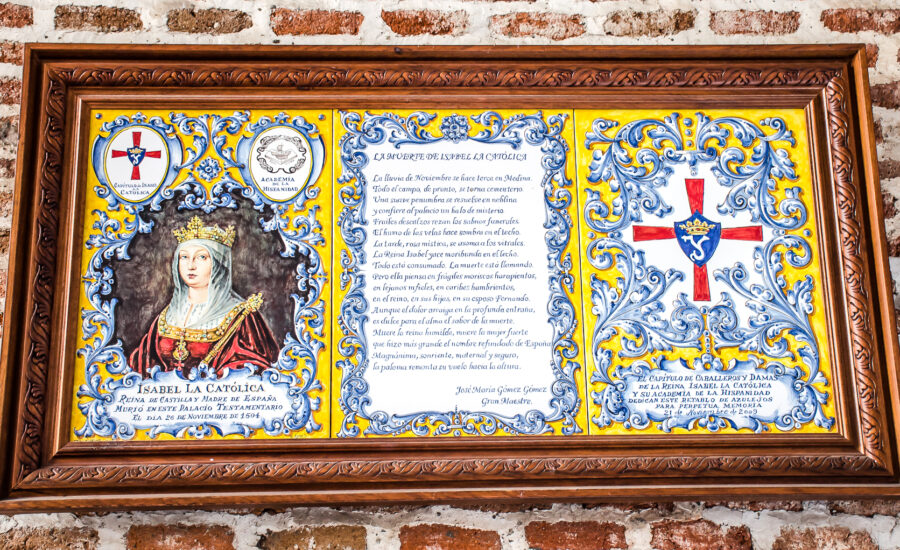 CAPÍTULO DE DAMAS
CATÓLICA
ACADEMIA
DE LA
HISPANIDAD
ISABEL LA CATÓLICA
REINA DE CASTILLA Y MADRE DE ESPAÑA
MURIÓ EN ESTE PALACIO TESTAMENTARIO
EL DIA 26 DE NOVIEMBRE DE 1504
LA MUERTE DE ISABEL LA CATÓLICA
La lluvia de Noviembre se hace terca en Medina.
Todo el campo, de pronto, se torna cementerio.
Una suave penumbra se resuelve en neblina
y confiere al palacio un halo de misterio.
Frailes descalzos rezan los salmos funerales.
El humo de las velas hace sombra en el techo.
La tarde, rosa mística, se asoma a los vitrales.
La Reina Isabel yace moribunda en el lecho.
Todo está consumado. La muerte está llamando.
Pero ella piensa en frágiles moriscos harapientos,
en lejanos infieles, en caribes hambrientos,
en el reino, en sus hijos, en su esposo Fernando.
Aunque el dolor arraiga en la profunda entraña,
es dulce para el alma el sabor de la muerte.
Muere la reina humilde, muere la mujer fuerte
que hizo más grande el nombre refundado de España
Magnánima, sonriente, maternal y segura,
la paloma remonta su vuelo hacia la altura.
José María Gómez Gómez
Gran Maestre.
EL CAPÍTULO DE CABALLEROS Y DAMAS
DE LA REINA ISABEL LA CATÓLICA
Y SU ACADEMIA DE LA HISPANIDAD
DEDICAN ESTE RETABLO DE AZULEJOS
PARA PERPETUA MEMORIA
21 de Noviembre de 2009